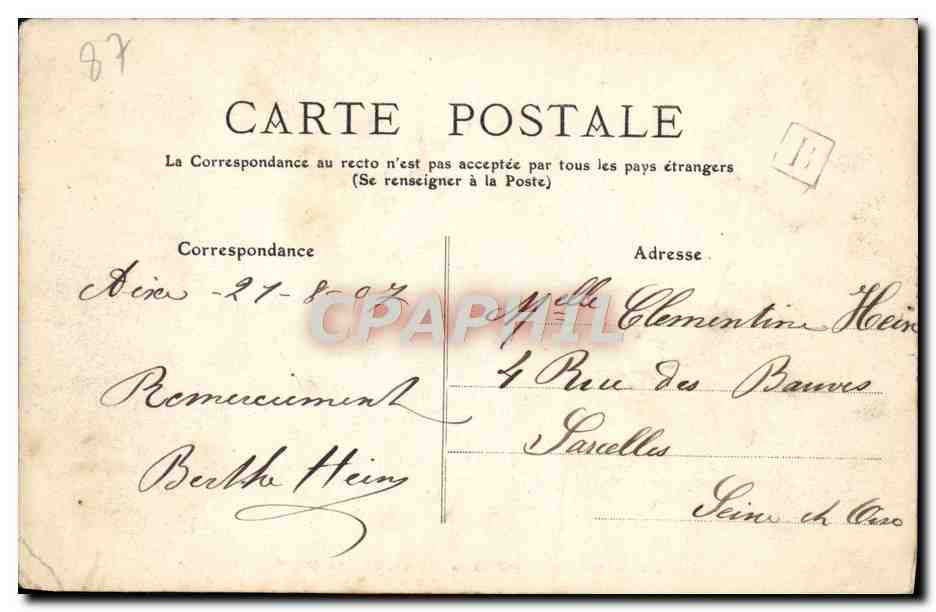 87
CARTE POSTALE
La Correspondance au recto n'est pas acceptée par tous les pays étrangers
(Se renseigner à la Poste)
B
Correspondance
Adresse
Aixe - 21-8-07
Remerciement
Berthe Hein
Melle Clementine Hein
4 Rue des Bauves
Sarcelles
Seine et Oise
CPAPHIL